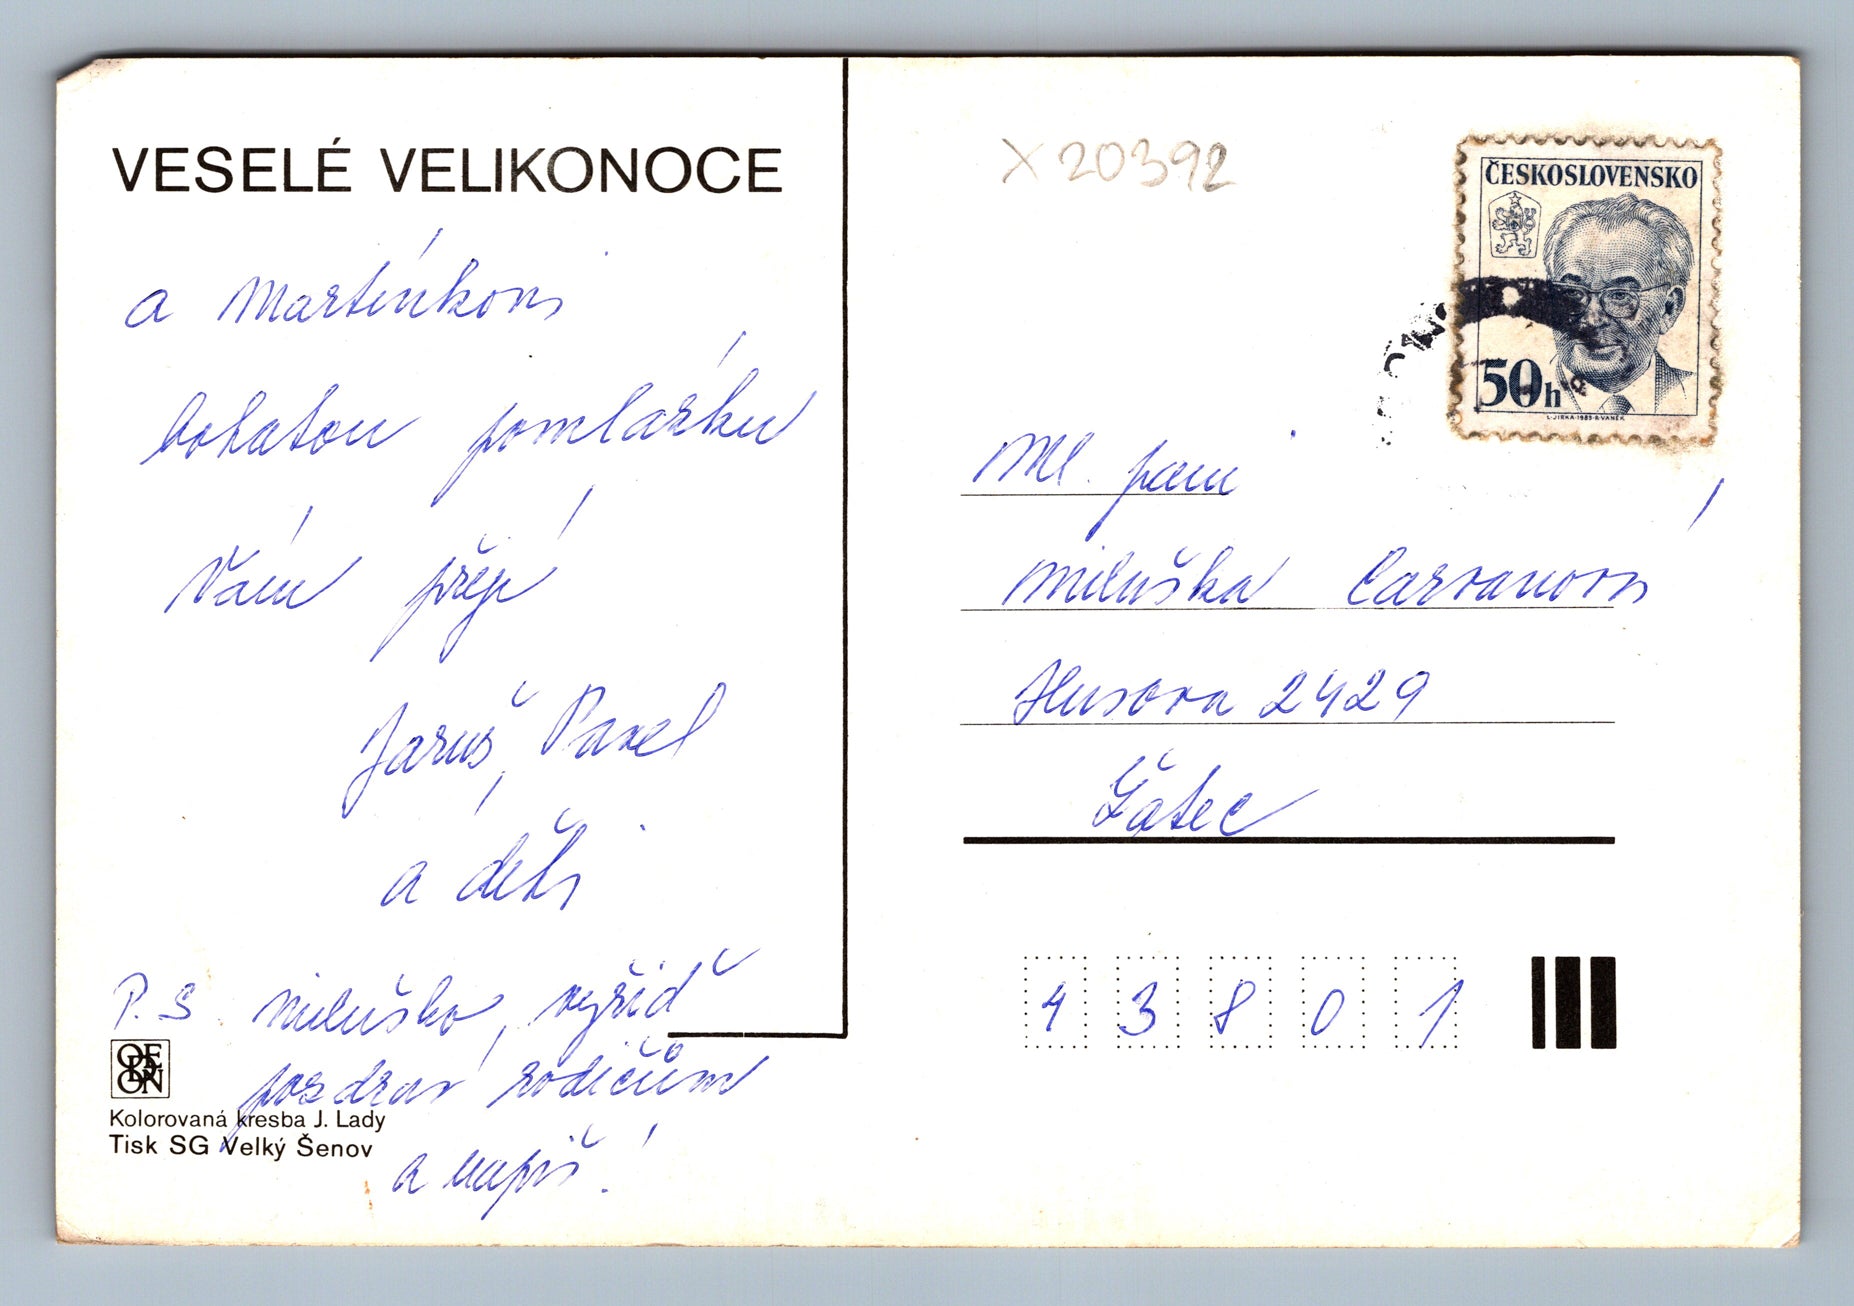 VESELÉ VELIKONOCE
a Martínkovi
bohatou pomlázku
Vám přejí
Jaruš, Pavel
a děti
P.S. Miluško, vyřiď
pozdrav rodičům
a napiš!
ODEON
Kolorovaná kresba J. Lady
Tisk SG Velký Šenov
X 20392
ČESKOSLOVENSKO
50h
L.JIRKA-1983-R.VANĚK
Ml. paní
Miluška
Husova 2429
Žatec
43801